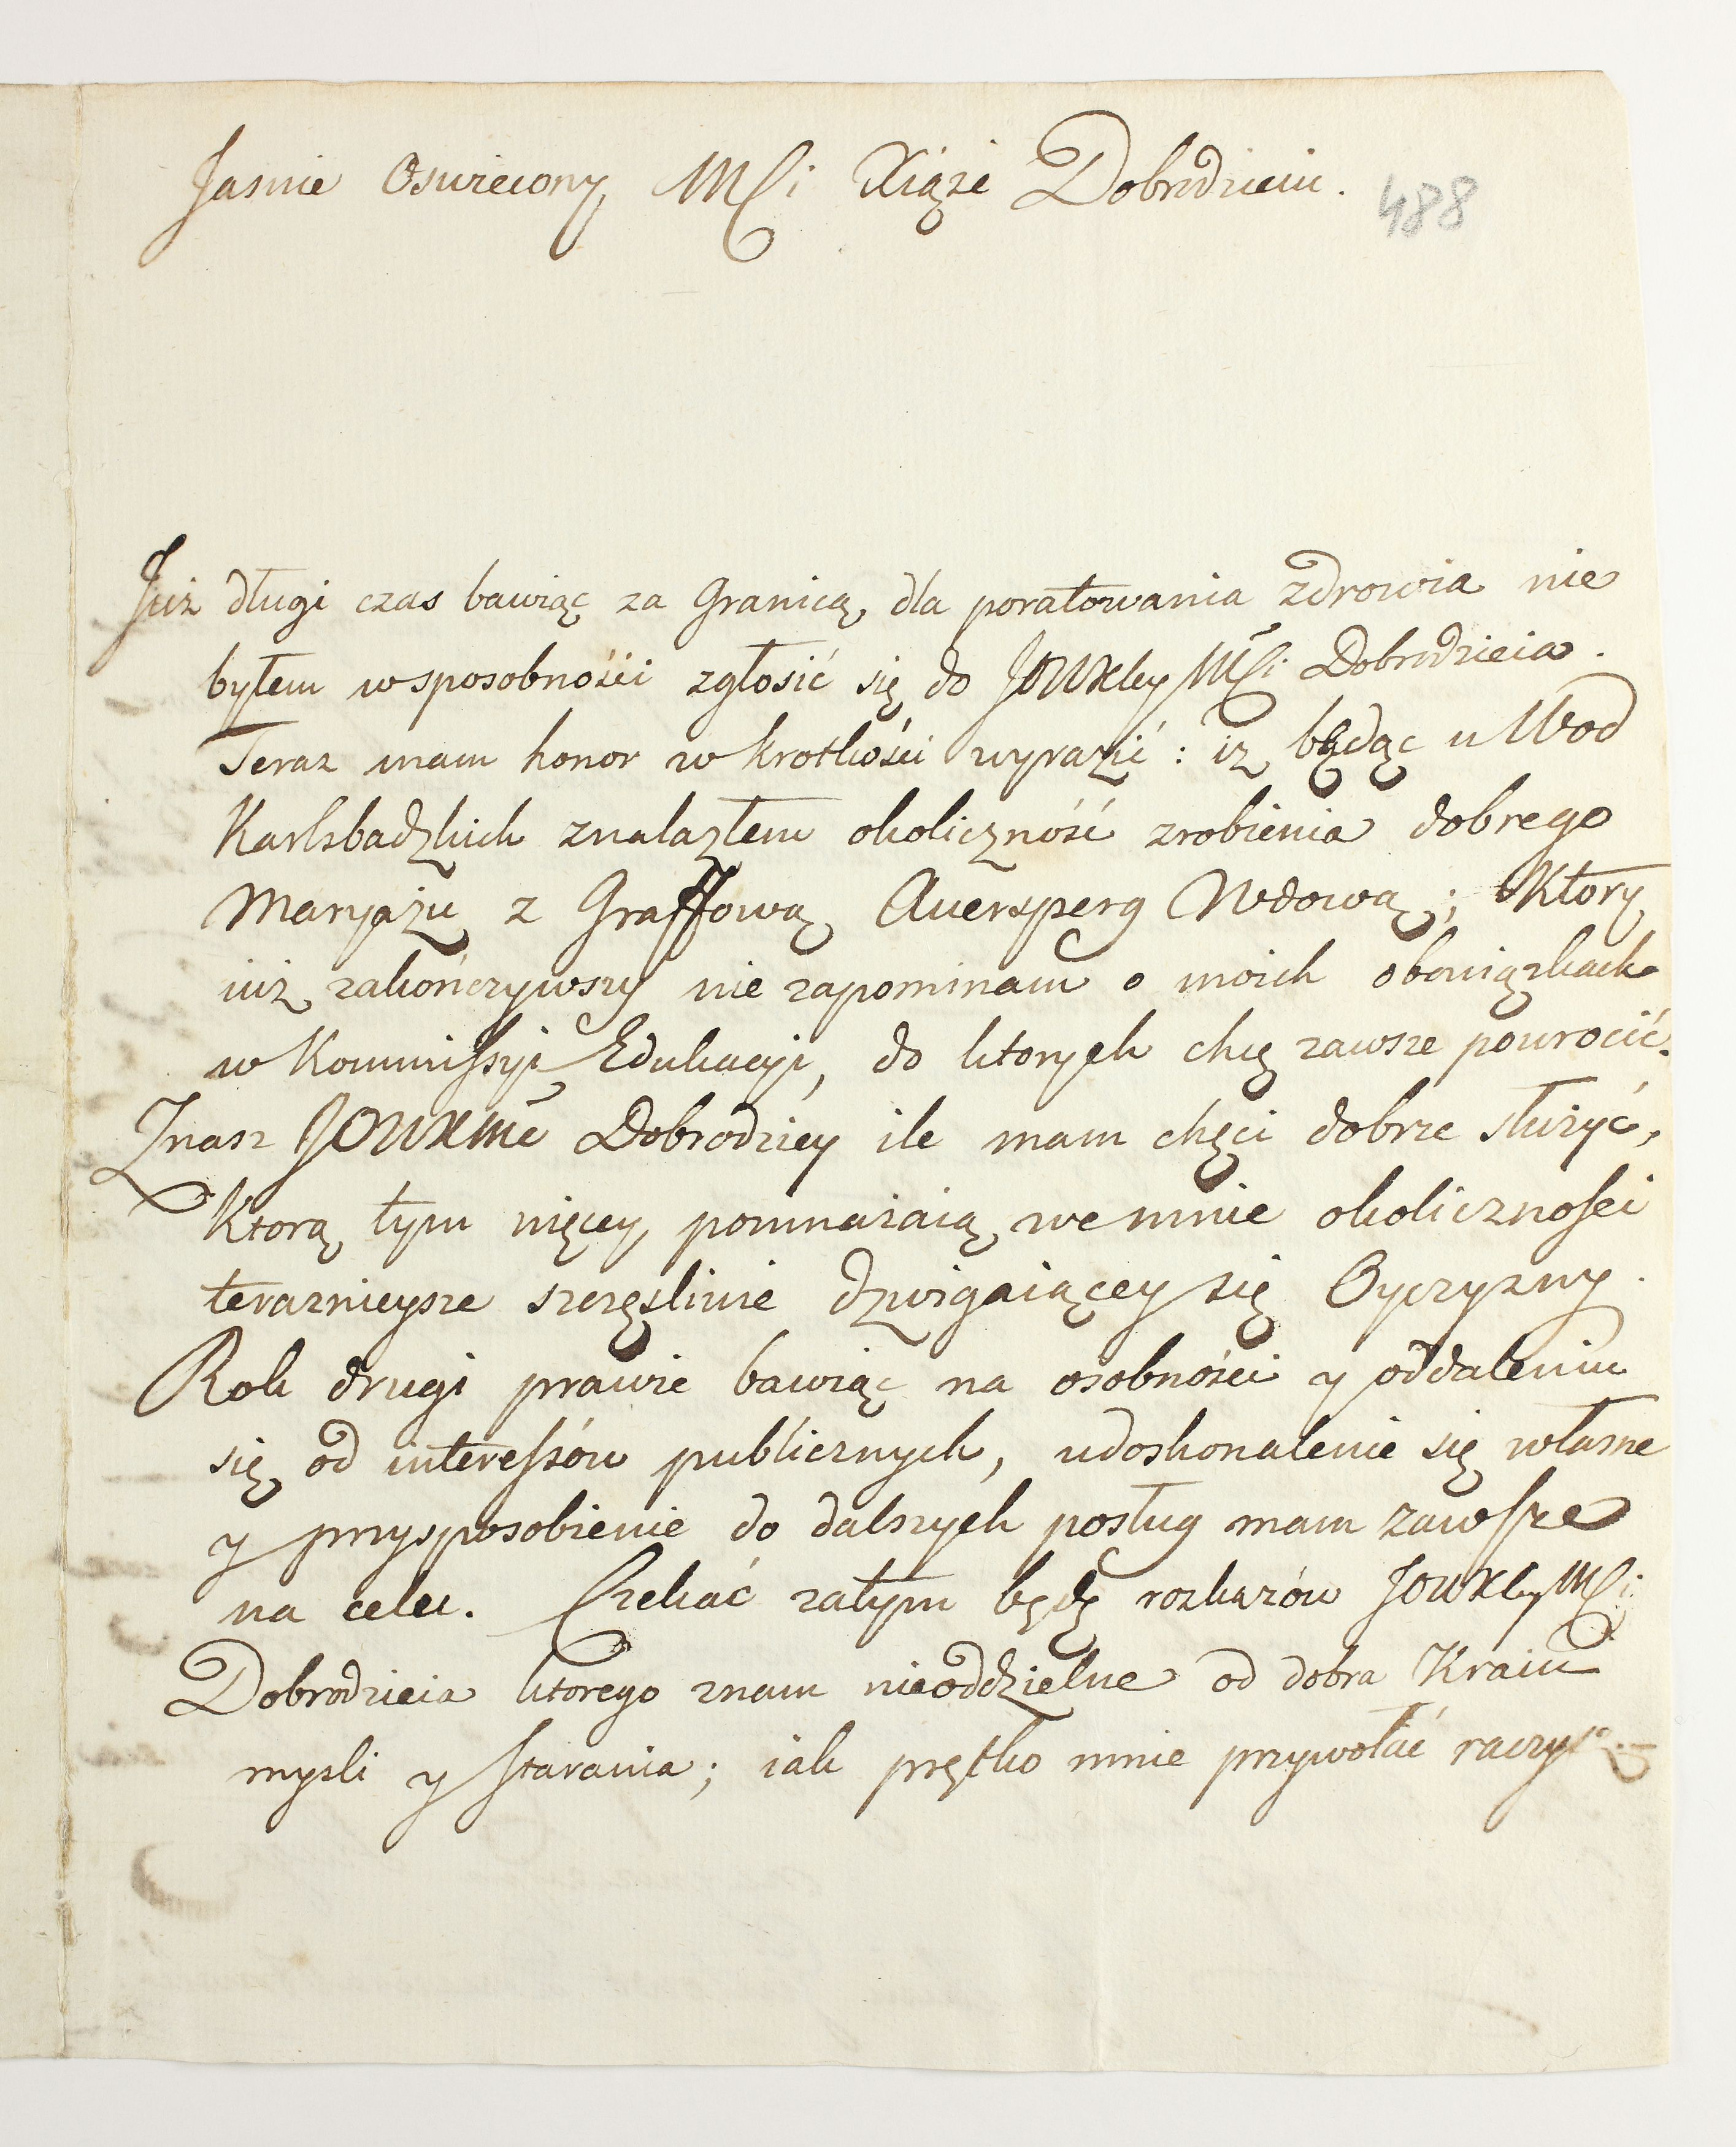 Jasnie Oswiecony Mści Xiąże Dobrodzieiu.
488
Już długi czas bawiąc za Granicą, dla poratowania zdrowia nie
byłem w sposobnośći zgłosić się do JOWXley Mści Dobrodzieia.
Teraz mam honor w krotkości wyrazić: iż będąc u Wod
Karlsbadzkich znalazłem okoliczność zrobienia dobrego
Maryażu z Graffową Auersperg Wdową; Ktory
iuż zakończywszy nie zapominam o moich obowiązkach
w Kommissyi Edukacyi, do ktorych chcę zawsze powrocić.
Znasz JOWXmć Dobrodziey ile mam chęci dobrze służyć,
Ktorą tym więcey pomnażaią we mnie okolicznosci
teraznieysze szczęśliwie dzwigaiącey się Oyczyzny.
Rok drugi prawie bawiąc na osobności y oddaleniu
się od interessów publicznych, udoskonalenie się własne
y przysposobienie do dalszych posług mam zawsze
na celu. Czekać zatym będę rozkazów JOWXley Mści
Dobrodzieia ktorego znam nieoddzielne od dobra Kraiu
mysli y starania; iak prętko mnie przywołać raczysz